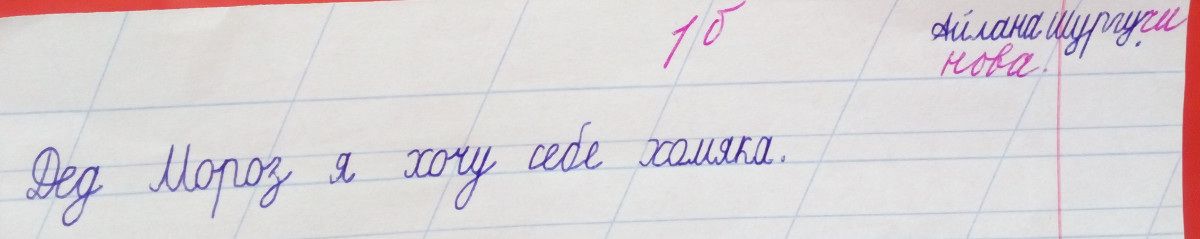 1 б
Айлана Шургучи
нова.
Дед Мороз я хочу себе хомяка.